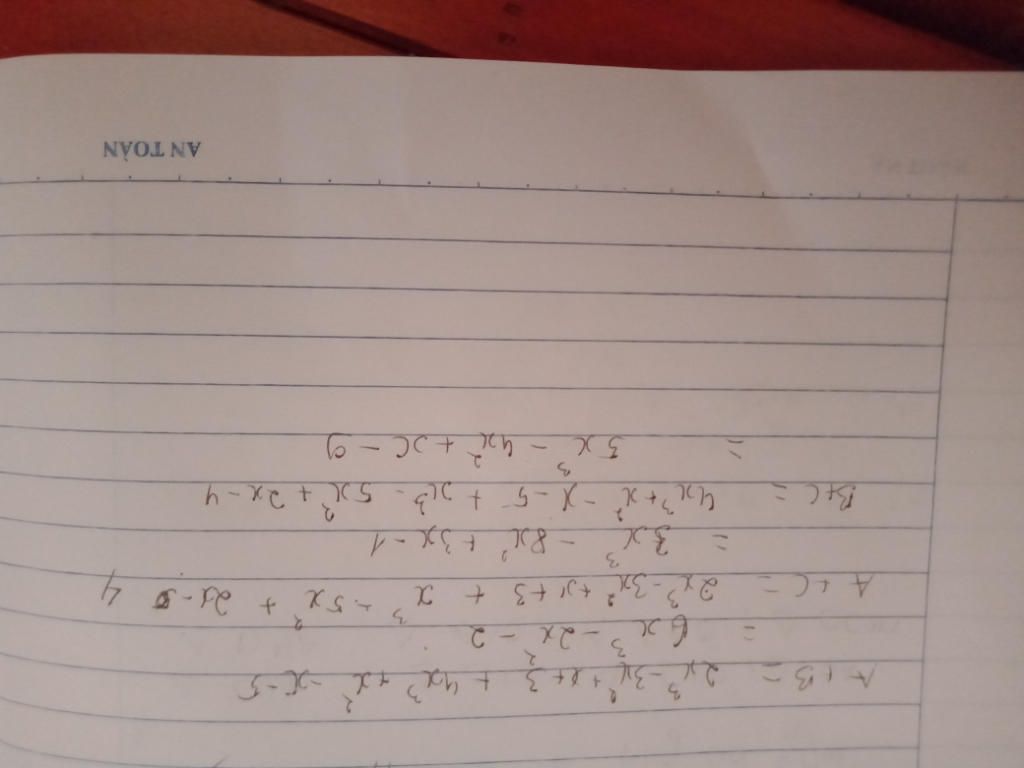 A + B = 2x³ - 3x² + x + 3 + 4x³ + x² - x - 5
= 6x³ - 2x² - 2
A + C = 2x³ - 3x² + x + 3 + x³ - 5x² + 2x - 4
= 3x³ - 8x² + 3x - 1
B + C = 4x³ + x² - x - 5 + x³ - 5x² + 2x - 4
= 5x³ - 4x² + x - 9
AN TOÀN